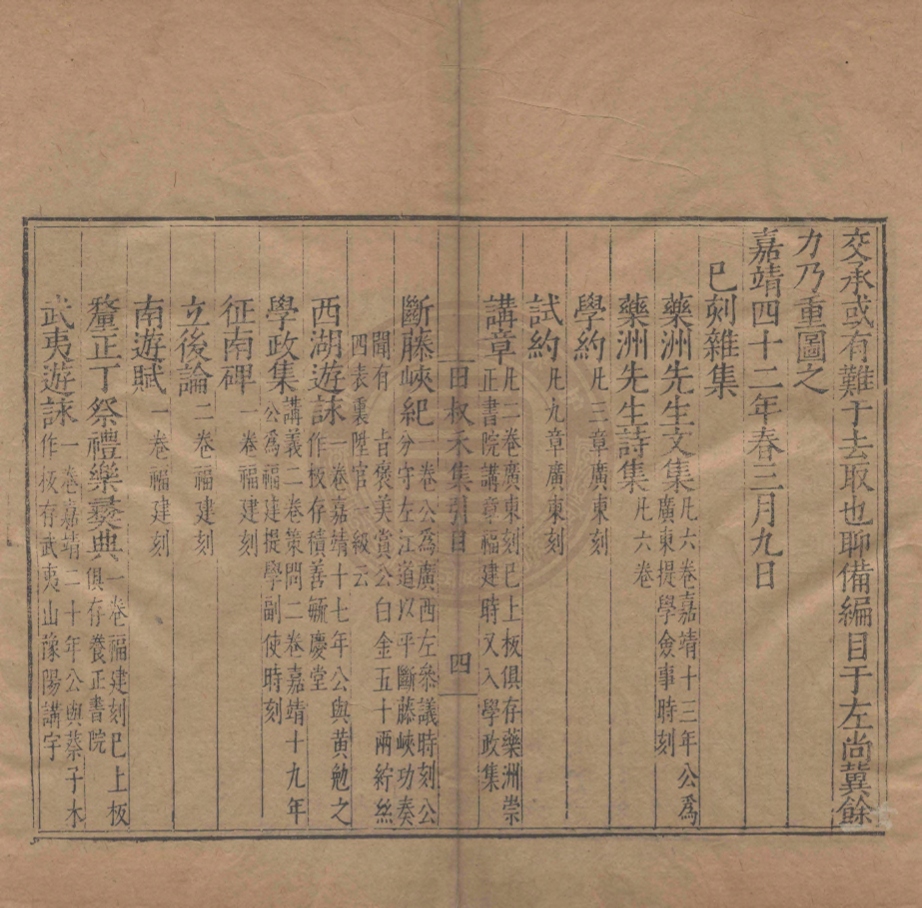 交承或有難于去取也聊備編目于左尚冀餘
力乃重圖之
嘉靖四十二年春三月九日
已刻雜集
藥洲先生文集凡六卷嘉靖十三年公爲廣東提學僉事時刻
藥洲先生詩集凡六卷
學約凡三章廣東刻
試約凡九章廣東刻
講章凡二卷廣東刻已上板俱存藥洲崇正書院講章福建時又入學政集
田叔禾集引目 四
斷藤峽紀一卷公爲廣西左叅議時刻公分守左江道以平斷藤峽功奏
聞有 旨褒美賞公白金五十兩紵絲四表裏陞官一級云
西湖遊詠一卷嘉靖十七年公與黃勉之作板存積善毓慶堂
學政集講義二卷策問二卷嘉靖十九年公爲福建提學副使時刻
征南碑一卷福建刻
立後論二卷福建刻
南遊賦一卷福建刻
釐正丁祭禮樂彞典一卷福建刻已上板俱存養正書院
武夷遊詠一卷嘉靖二十年公與蔡子木作板存武夷山豫陽講宇